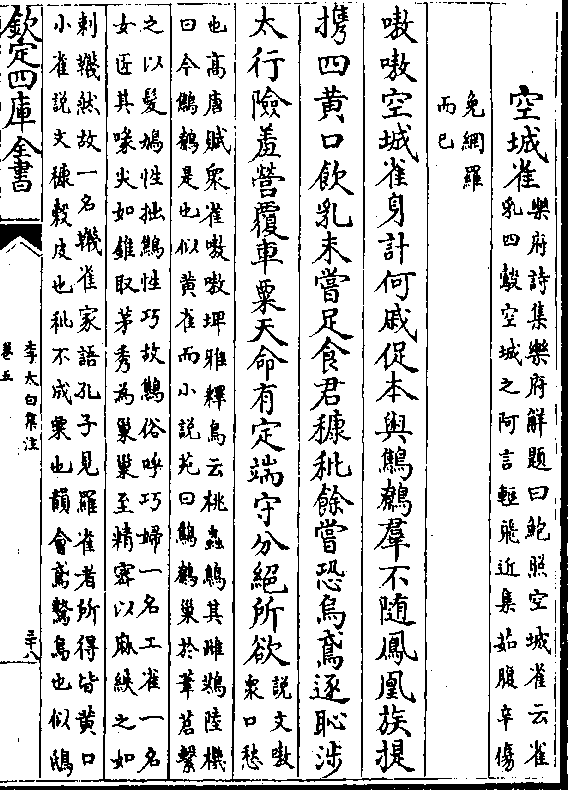 空城雀樂府詩集樂府解題曰鮑照空城雀云雀
乳四鷇空城之阿言輕飛近集茹腹辛傷
免網羅
而已
嗷嗷空城雀身計何戚促本與鷦鷯羣不隨鳳凰族提
攜四黃口飲乳未嘗足食君穅秕餘嘗恐烏鳶逐恥涉
太行險羞營覆車粟天命有定端守分絕所欲說文嗷
衆口愁
也高唐賦衆雀嗷嗷埤雅釋鳥云桃蟲鷦其雌鴱陸機
曰今鷦鷯是也似黃雀而小說苑曰鷦鷯巢於葦苕繫
之以髮鳩性拙鷦性巧故鷦俗呼巧婦一名工雀一名
女匠其喙尖如錐取茅秀為巢巢至精宻以麻紩之如
刺韤然故一名韤雀家語孔子見羅雀者所得皆黃口
小雀說文穅榖皮也秕不成粟也韻會鳶鷙鳥也似鴟
欽定四庫全書
李太白集注
卷五
三十八